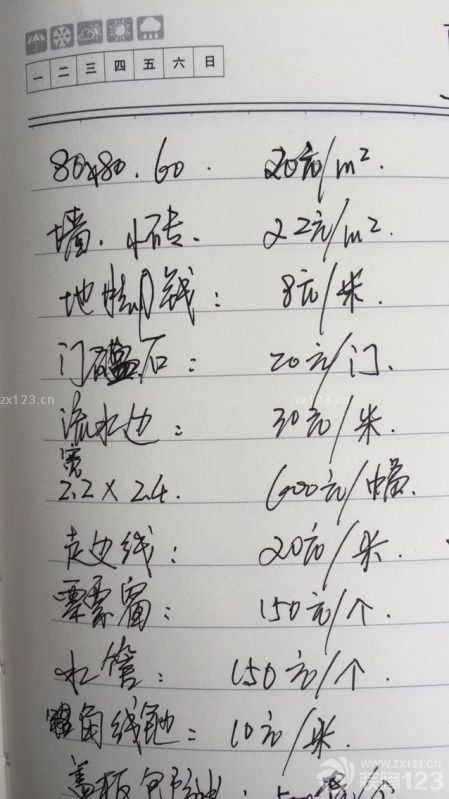 一 二 三 四 五 六 日
80×80. 60. 20元/m².
墙. 小砖. 22元/m²
地脚线: 8元/米.
门磕石: 20元/门.
流水边: 30元/米.
宽
2.2×2.4. 600元/幅.
走边线: 20元/米.
飘窗: 150元/个.
水管: 150元/个.
角线: 10元/米.
盖板
zx123.cn
WWW.ZX123.CN
装修123